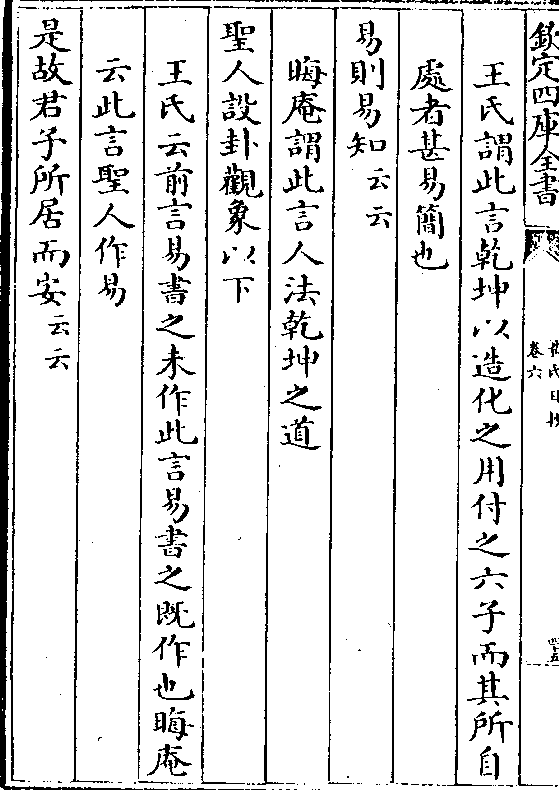 欽定四庫全書
黃氏日抄
卷六
四十五
王氏謂此言乾坤以造化之用付之六子而其所自
處者甚易簡也
易則易知云云
晦庵謂此言人法乾坤之道
聖人設卦觀象以下
王氏云前言易書之未作此言易書之既作也晦庵
云此言聖人作易
是故君子所居而安云云